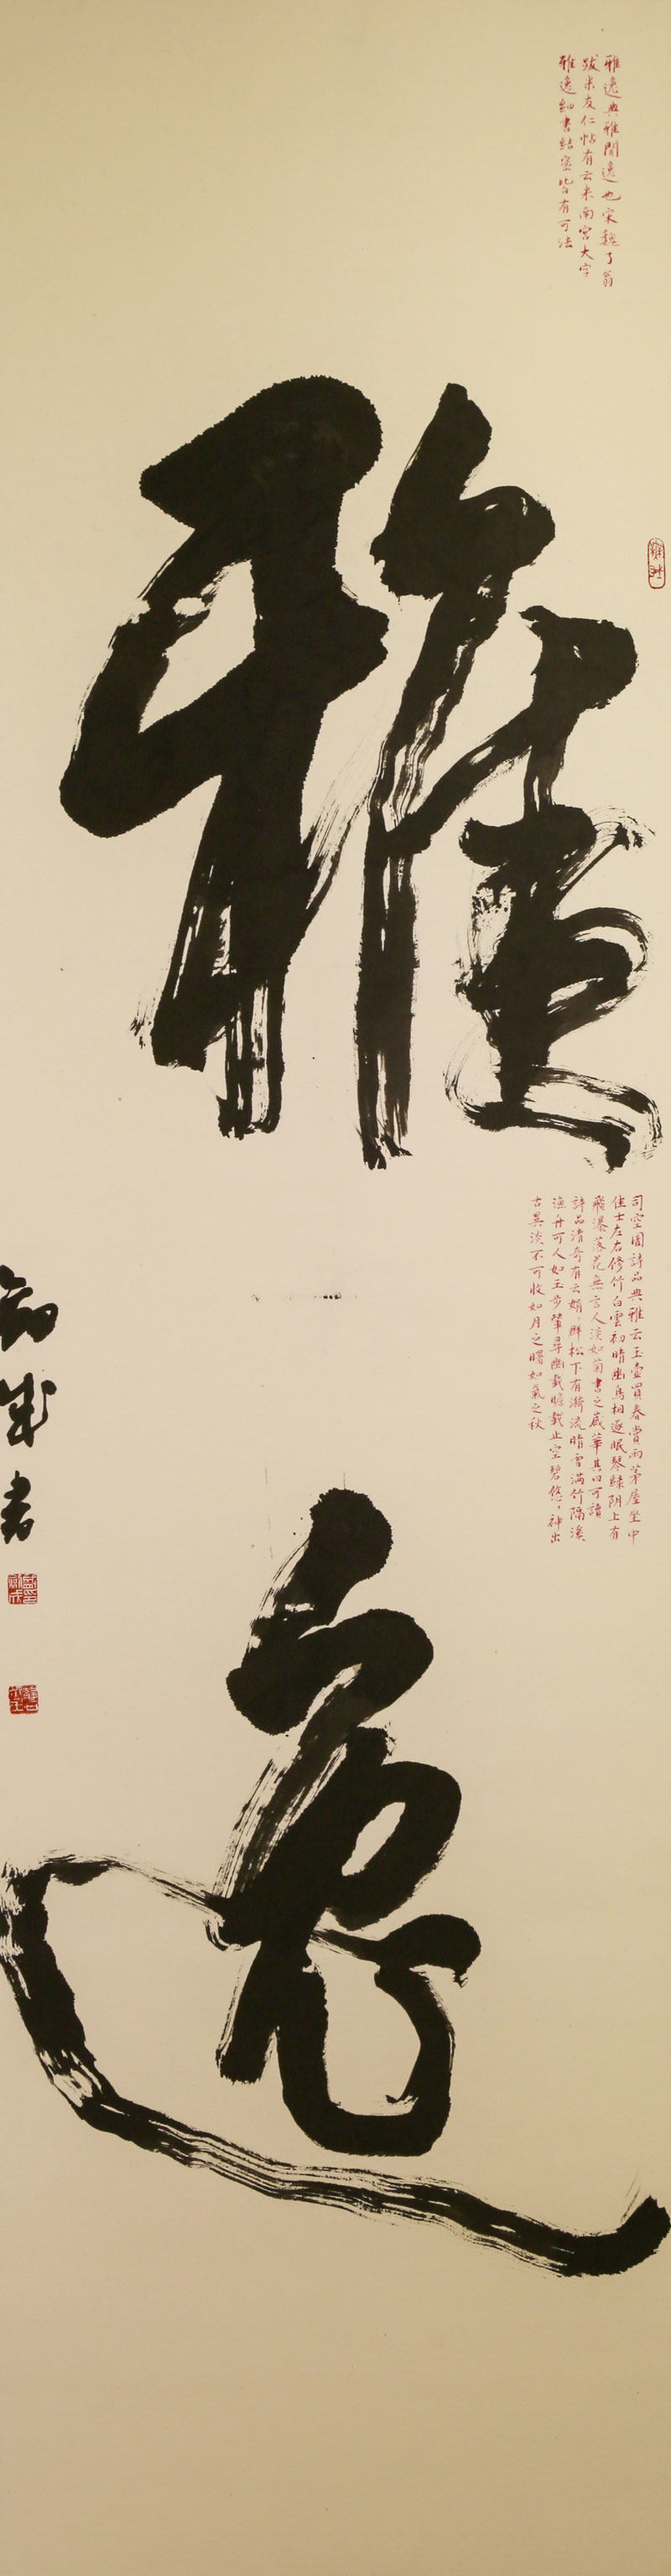 雅逸典雅閒逸也宋魏了翁
跋米友仁帖有云米南宮大字
雅逸細書結密皆有可法
雅逸
司空圖詩品典雅云玉壺買春賞雨茅屋坐中
佳士左右修竹白雲初晴幽鳥相逐眠琴綠阴上有
飛瀑落花無言人淡如菊書之歲華其曰可讀
詩品清奇有云娟〻群松下有漪流晴雪滿竹隔溪
漁舟可人如玉步屧尋幽載瞻載止空碧悠〻神出
古異淡不可收如月之曙如氣之秋
劍成書